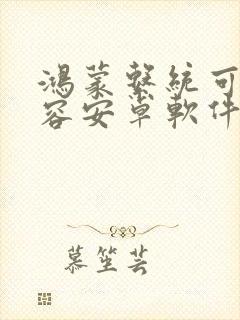 鴻蒙繫統可
容安卓軟件
慕笙芸